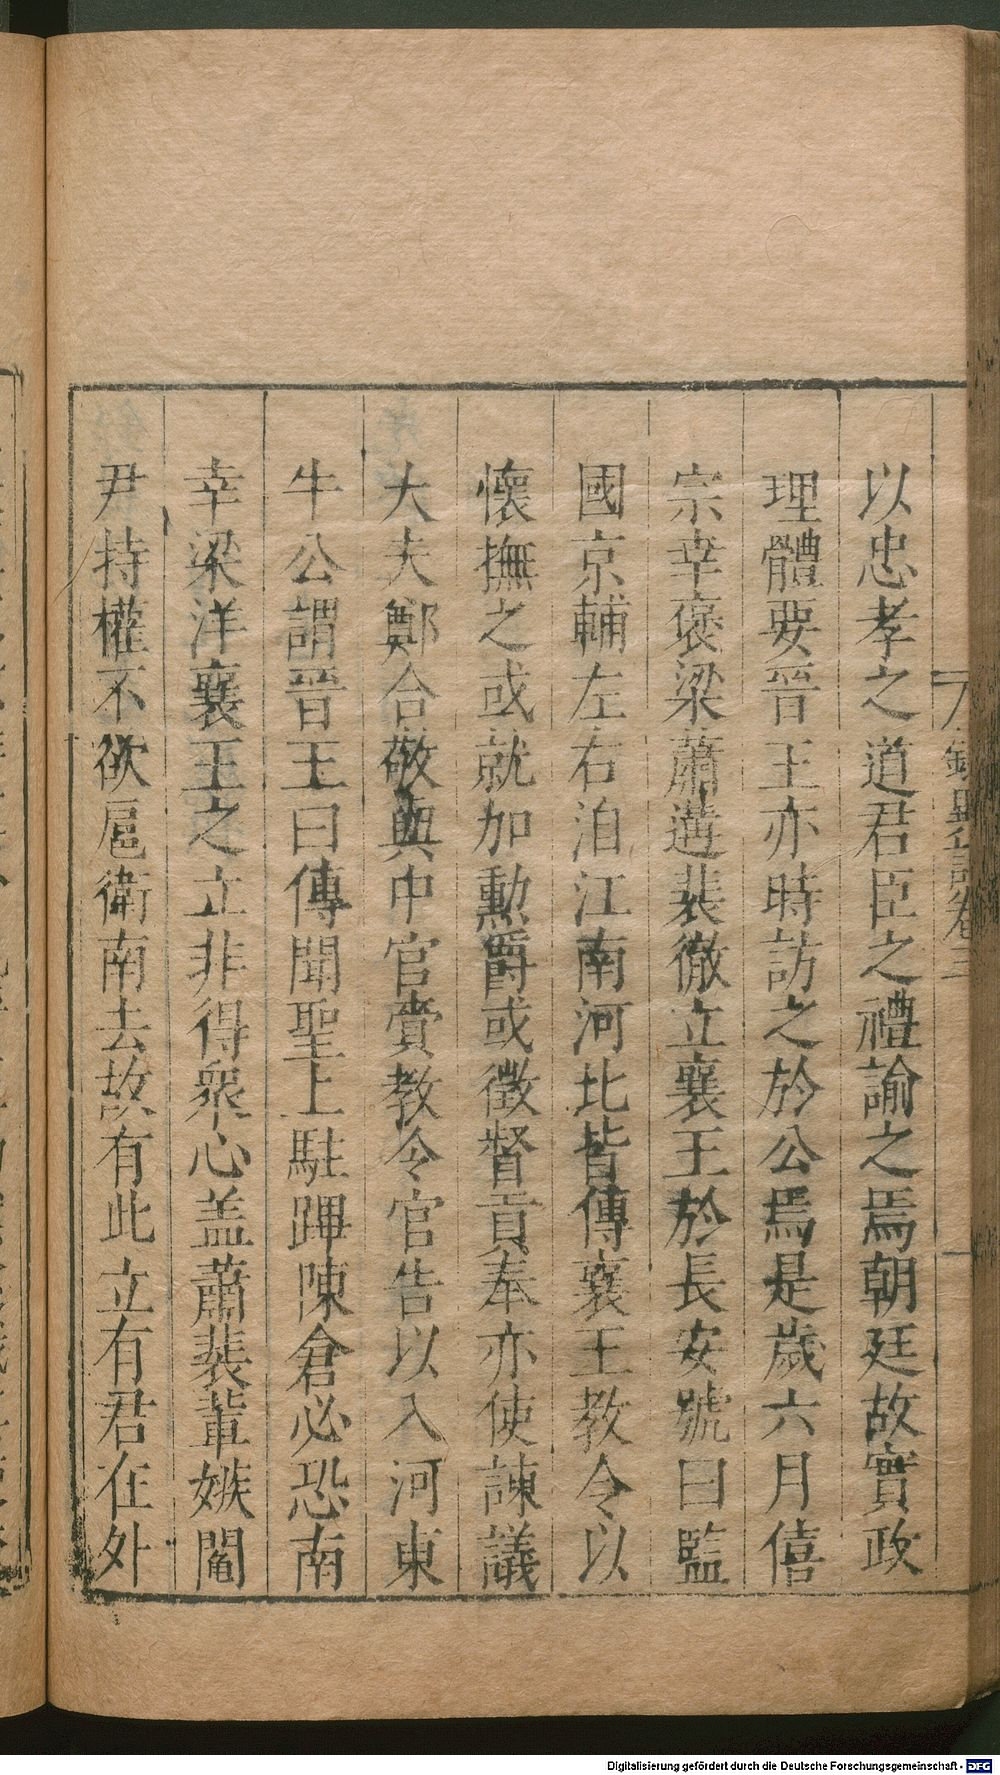 以忠孝之道君臣之禮諭之焉朝廷故實政
理體要晉王亦時訪之於公焉是歲六月僖
宗幸褒梁蕭遘裴徹立襄王於長安號曰監
國京輔左右洎江南河北皆傳襄王教令以
懷撫之或就加勲爵或徵督貢奉亦使諫議
大夫鄭合敬與中官賫教令官告以入河東
牛公謂晉王曰傳聞聖上駐蹕陳倉必恐南
幸梁洋襄王之立非得衆心盖蕭裴輩嫉閹
尹持權不欲扈衛南去故有此立有君在外
Digitalisierung gefördert durch die Deutsche Forschungsgemeinschaft - DFG